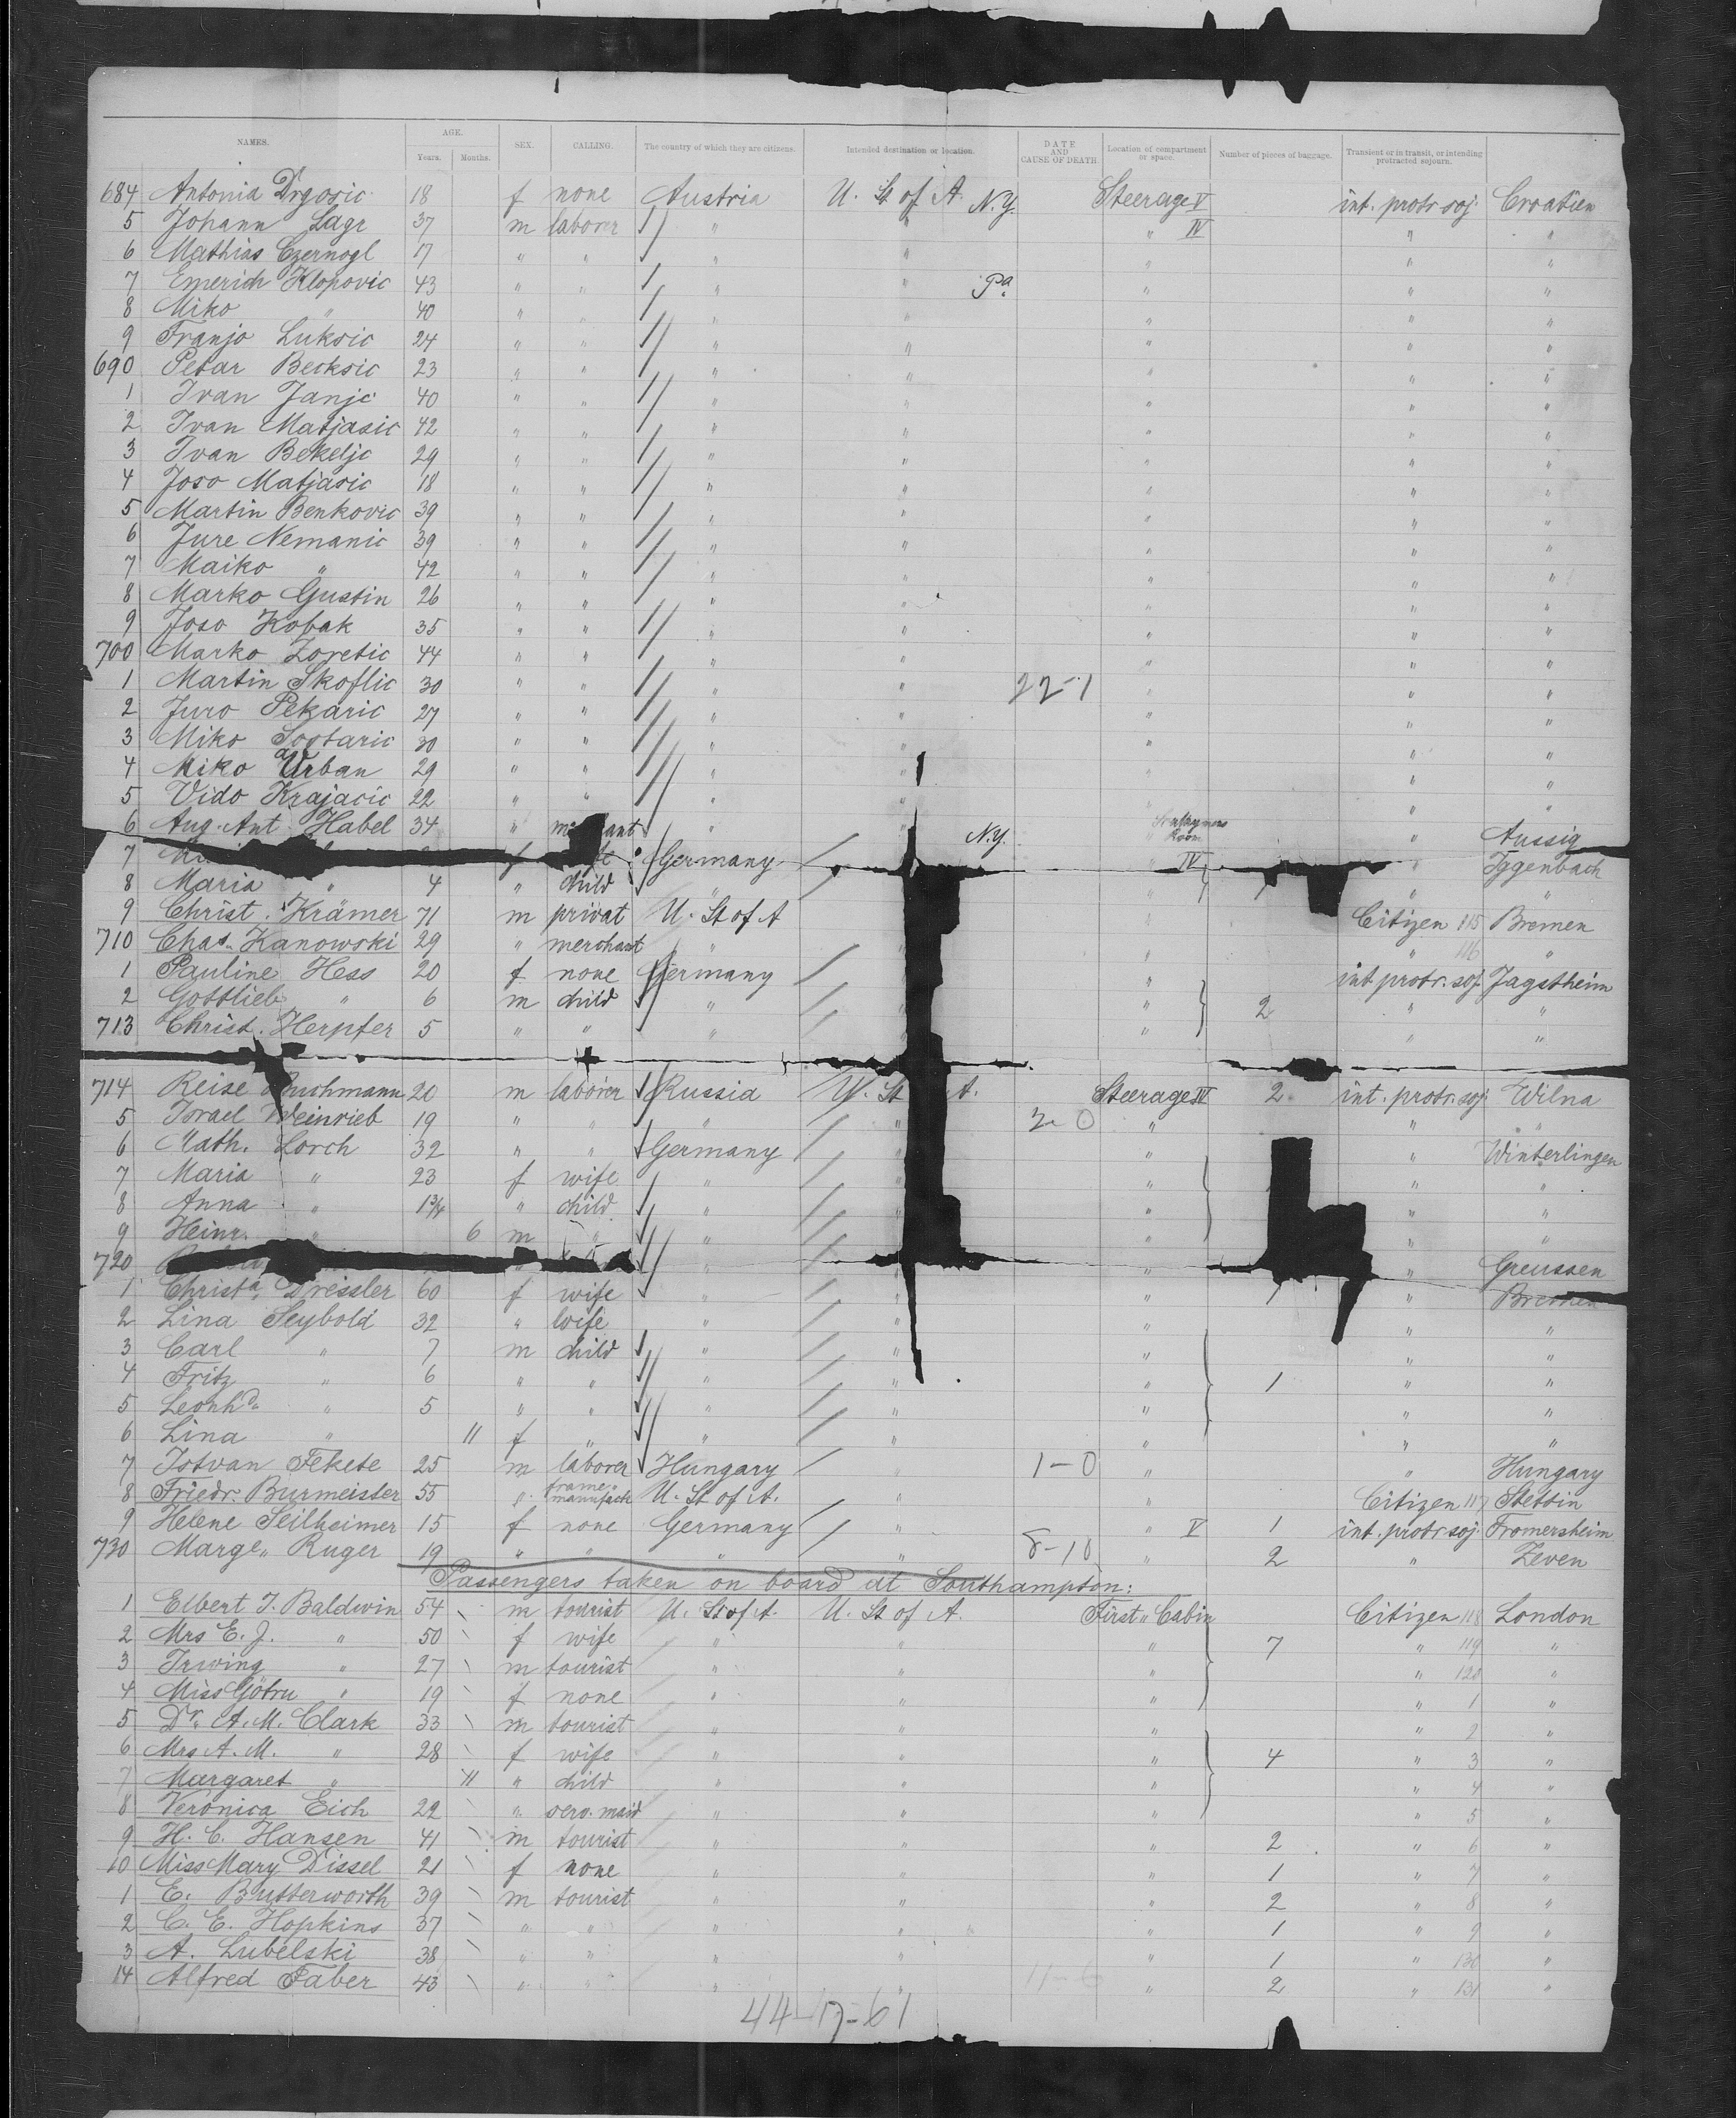 NAMES. AGE. Years. Months. SEX. CALLING. The country of which they are citizens. Intended destination or location. DATE AND CAUSE OF DEATH Location of compartment or space. Number of pieces of baggage. Transient or in transit, or intending protracted sojourn.
684 Antonia Drgosic 18 f none Austria U. St of A. N.Y. Steerage V int. protr. soj. Croatien
5 Johann Lagr 37 m laborer " " " IV " "
6 Mathias Czernogl 17 " " " " " " "
7 Emerich Klopovic 43 " " " " Pa " " "
8 Miko " 40 " " " " " " "
9 Franjo Luksic 24 " " " " " " "
690 Petar Becksic 23 " " " " " " "
1 Ivan Janjc 40 " " " " " " "
2 Ivan Matjasic 42 " " " " " " "
3 Ivan Bekeljc 29 " " " " " " "
4 Joso Matjasic 18 " " " " " " "
5 Martin Benkovic 39 " " " " " " "
6 Jure Nemanic 39 " " " " " " "
7 Maiko " 42 " " " " " " "
8 Marko Gustin 26 " " " " " " "
9 Joso Kobak 35 " " " " " " "
700 Marko Zoretic 44 " " " " " " "
1 Martin Skoflic 30 " " " " 22-1 " " "
2 Juro Pekaric 27 " " " " " " "
3 Miko Sostaric 30 " " " " " " "
4 Miko Urban 29 " " " " " " "
5 Vido Krajacic 22 " " " " " " "
6 Aug. Ant. Habel 34 " " " N.Y. " Room " Aussig
7 f Germany " IV " Iggenbach
8 Maria " 4 " child " " " "
9 Christ. Krämer 71 m privat U. St of A " Citizen 115 Bremen
710 Chas. Kanowski 29 " merchant " " " 116 "
1 Pauline Hess 20 f none Germany " int. protr. soj. Jagstheim
2 Gottlieb " 6 m child " " 2 " "
713 Christ. Herpfer 5 " " " " " "
714 Reise Buchmann 20 m laborer Russia U. St A. Steerage IV 2 int. protr. soj. Wilna
5 Israel Weinrieb 19 " " " " 2-0 " " "
6 Math. Lorch 32 " " Germany " " " Winterlingen
7 Maria " 23 f wife " " " "
8 Anna " 1¾ " child " " " "
9 Heinr. " 6 m " " " " "
720 " " " Greussen
1 Christa. Dressler 60 f wife " " " " Bremen
2 Lina Seybold 32 " wife " " " " "
3 Carl " 7 m child " " " " "
4 Fritz " 6 " " " " " 1 " "
5 Leonhd. " 5 " " " " " " "
6 Lina " 11 f " " " " " "
7 Istvan Fekete 25 m laborer Hungary " 1-0 " " Hungary
8 Friedr. Burmeister 55 " frame manufact U. St of A. " " Citizen 117 Stettin
9 Helene Seilheimer 15 f none Germany " " V 1 int. protr. soj. Fromersheim
730 Marge. Ruger 19 " " " " 8-10 " 2 " Zeven
Passengers taken on board at Southampton:
1 Elbert J. Baldwin 54 m tourist U. St of A. U. St of A. First Cabin Citizen 118 London
2 Mrs E. J. " 50 f wife " " " 7 " 119 "
3 Irwing " 27 m tourist " " " " 120 "
4 Miss Götru " 19 f none " " " " 1 "
5 Dr. A. M. Clark 33 m tourist " " " " 2 "
6 Mrs A. M. " 28 f wife " " " 4 " 3 "
7 Margaret " 11 " child " " " " 4 "
8 Veronica Eich 22 " serv. maid " " " " 5 "
9 H. C. Hansen 41 m tourist " " " 2 " 6 "
10 Miss Mary Dissel 21 f none " " " 1 " 7 "
1 E. Butterworth 39 m tourist " " " 2 " 8 "
2 C. E. Hopkins 37 " " " " " 1 " 9 "
3 A. Lubelski 38 " " " " " 1 " 130 "
14 Alfred Faber 43 " " " " 11-6 " 2 " 131 "
44-17-61